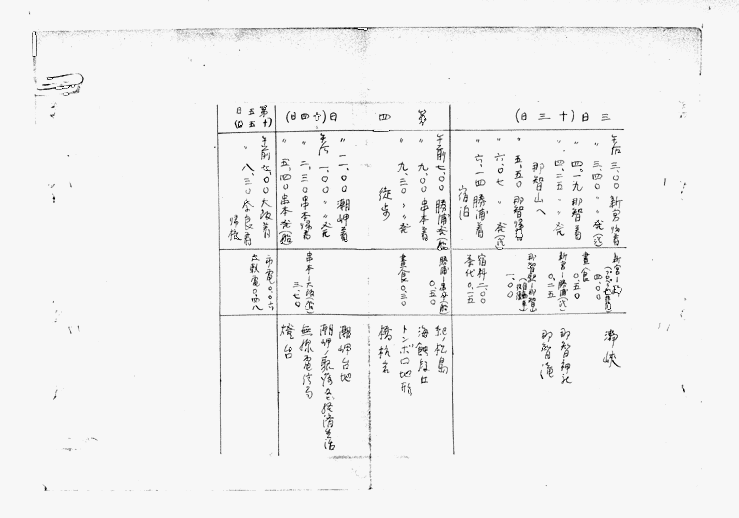 三日(十三日)
午后三、〇〇新宮帰着
〃三、四〇〃発(汽)
〃四、一九那智着
〃四、二五〃発
那智山へ
〃五、五〇那智帰着
〃六、〇七〃発(汽)
〃六、一四勝浦着
宿泊
四、〇〇
昼食
〇、五〇
新宮―勝浦(汽)
〇、二五
那智駅―那智山
(自動車)
一、〇〇
宿料二、〇〇
茶代〇、一五
瀞峡
那智神社
那智滝
第四日(十四日)
午前七、〇〇勝浦発(船)
〃九、〇〇串本着
〃九、三〇〃発
徒歩
〃一一、〇〇潮岬着
午后一、〇〇〃発
〃二、三〇串本帰着
〃五、四〇串本発(船)
勝浦―串本(船)
〇、五〇
昼食〇、三〇
串本―大阪(船)
三、七〇
紀ノ松島
海蝕段丘
トンボロ地形
橋杭岩
潮岬台地
潮岬ノ聚落及経済生活
無線電信局
燈台
第五日(十五日)
午前七、〇〇大阪着
〃八、三〇奈良着
帰校
市電〇、〇六
大軌電〇、四八